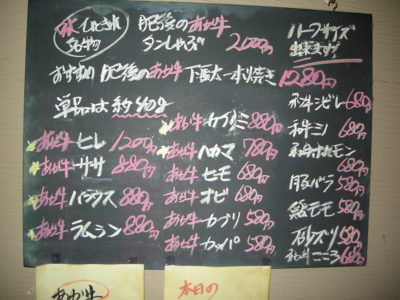 肥後のあか牛
タンしゃぶ 2000円
ハーフサイズ
出来ます
おすすめ 肥後のあか牛 下駄 一本焼き 1280円
単品は約40g
あか牛 ヒレ 1200円
あか牛 ササ 880円
あか牛 バラウス 880円
あか牛 ラムシン 880円
あか牛 カブリミ 880円
あか牛 ハカマ 780円
あか牛 ヒモ 680円
あか牛 オビ 680円
あか牛 カブリ 580円
あか牛 カッパ 580円
和牛シビレ 680円
和牛ミノ 680円
和牛ホルモン 680円
豚バラ 580円
鶏モモ 580円
砂ズリ 580円
こころ 680円
あか牛
本日の